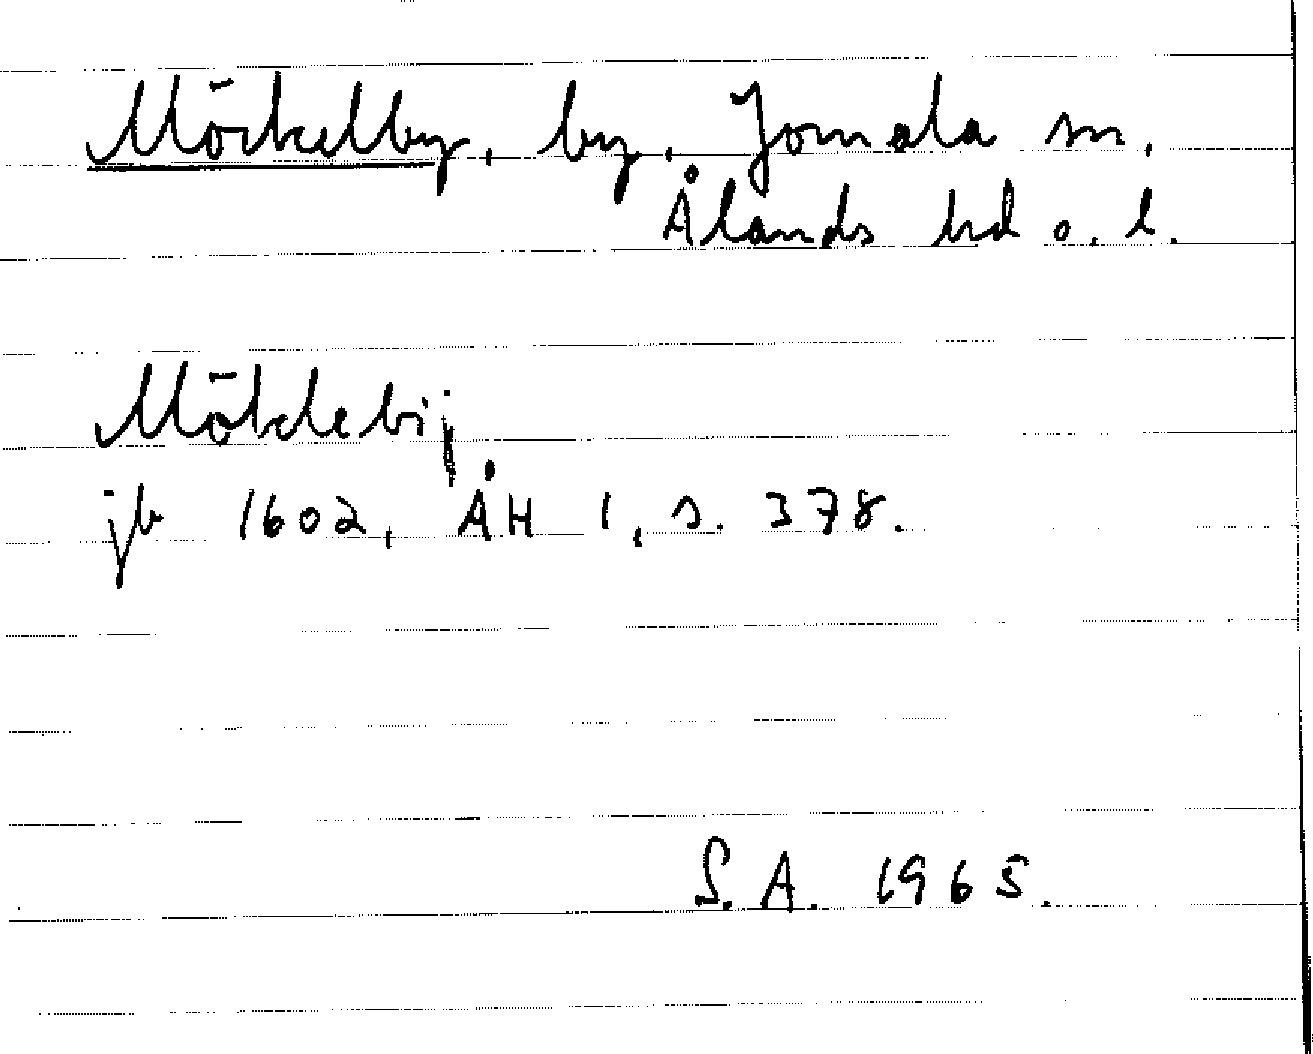 Mörkelby, by, Jomala sn,
Ålands hd o. l.
Möklebij
jb 1602, ÅH 1, s. 378.
S.A. 1965.